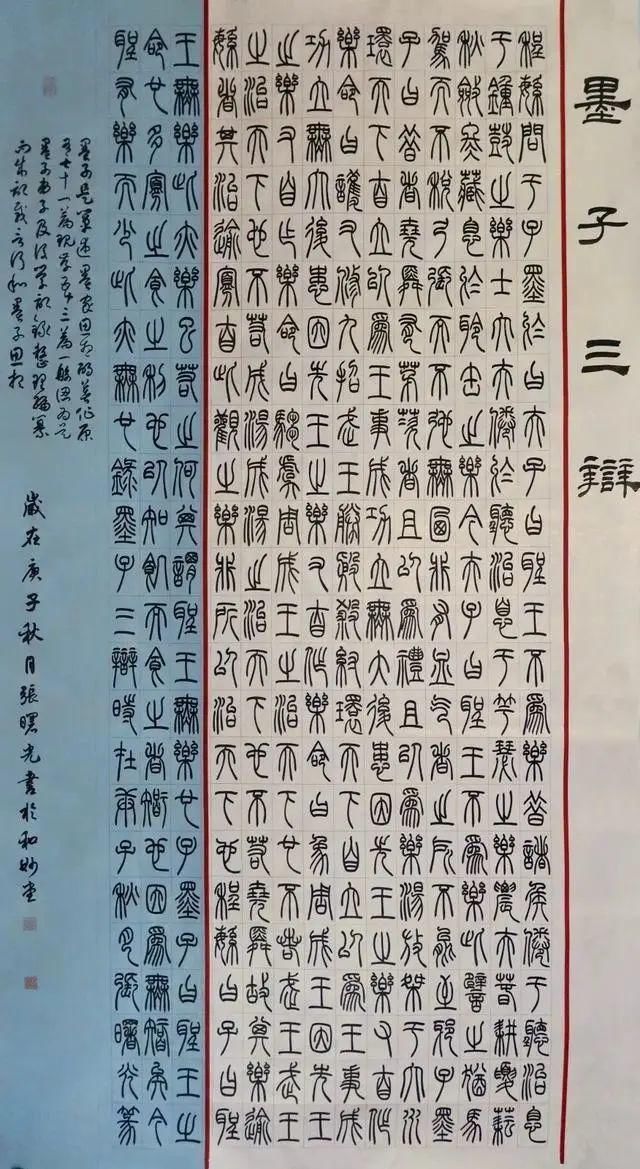 墨子三辯
程繁問于子墨於曰夫子曰聖王不爲樂昔諸侯倦于聽治息
于鍾鼓之樂士大夫倦於聽治息于竽瑟之樂農夫春耕夏耘
秋斂冬藏息於聆缶之樂今夫子曰聖王不爲樂此譬之猶馬
駕而不稅弓張而不弛無乃非有血氣者之所不能至邪子墨
子曰昔者堯舜有茅茨者且以爲禮且以爲樂湯放桀于大水
環天下自立以爲王事成功立無大後患因先王之樂又自作
樂命曰護又脩九招武王勝殷殺紂環天下自立以爲王事成
功立無大後患因先王之樂又自作樂命曰象周成王因先王
之樂又自作樂命曰騶虞周成王之治天下也不若武王武王
之治天下也不若成湯成湯之治天下也不若堯舜故其樂逾
繁者其治逾寡自此觀之樂非所以治天下也程繁曰子曰聖
王無樂此亦樂已若之何其謂聖王無樂也子墨子曰聖王之
命也多寡之食之利也以知飢而食之者智也因爲無智矣今
聖有樂而少此亦無也錄墨子三辯時在庚子秋月張曙光篆
墨子是闡述墨家思想的著作原
有七十一篇現存五十三篇一般認为是
墨子弟子及後學記錄整理編纂
而成記載言行和墨子思想
歲在庚子秋月張曙光書於和妙堂